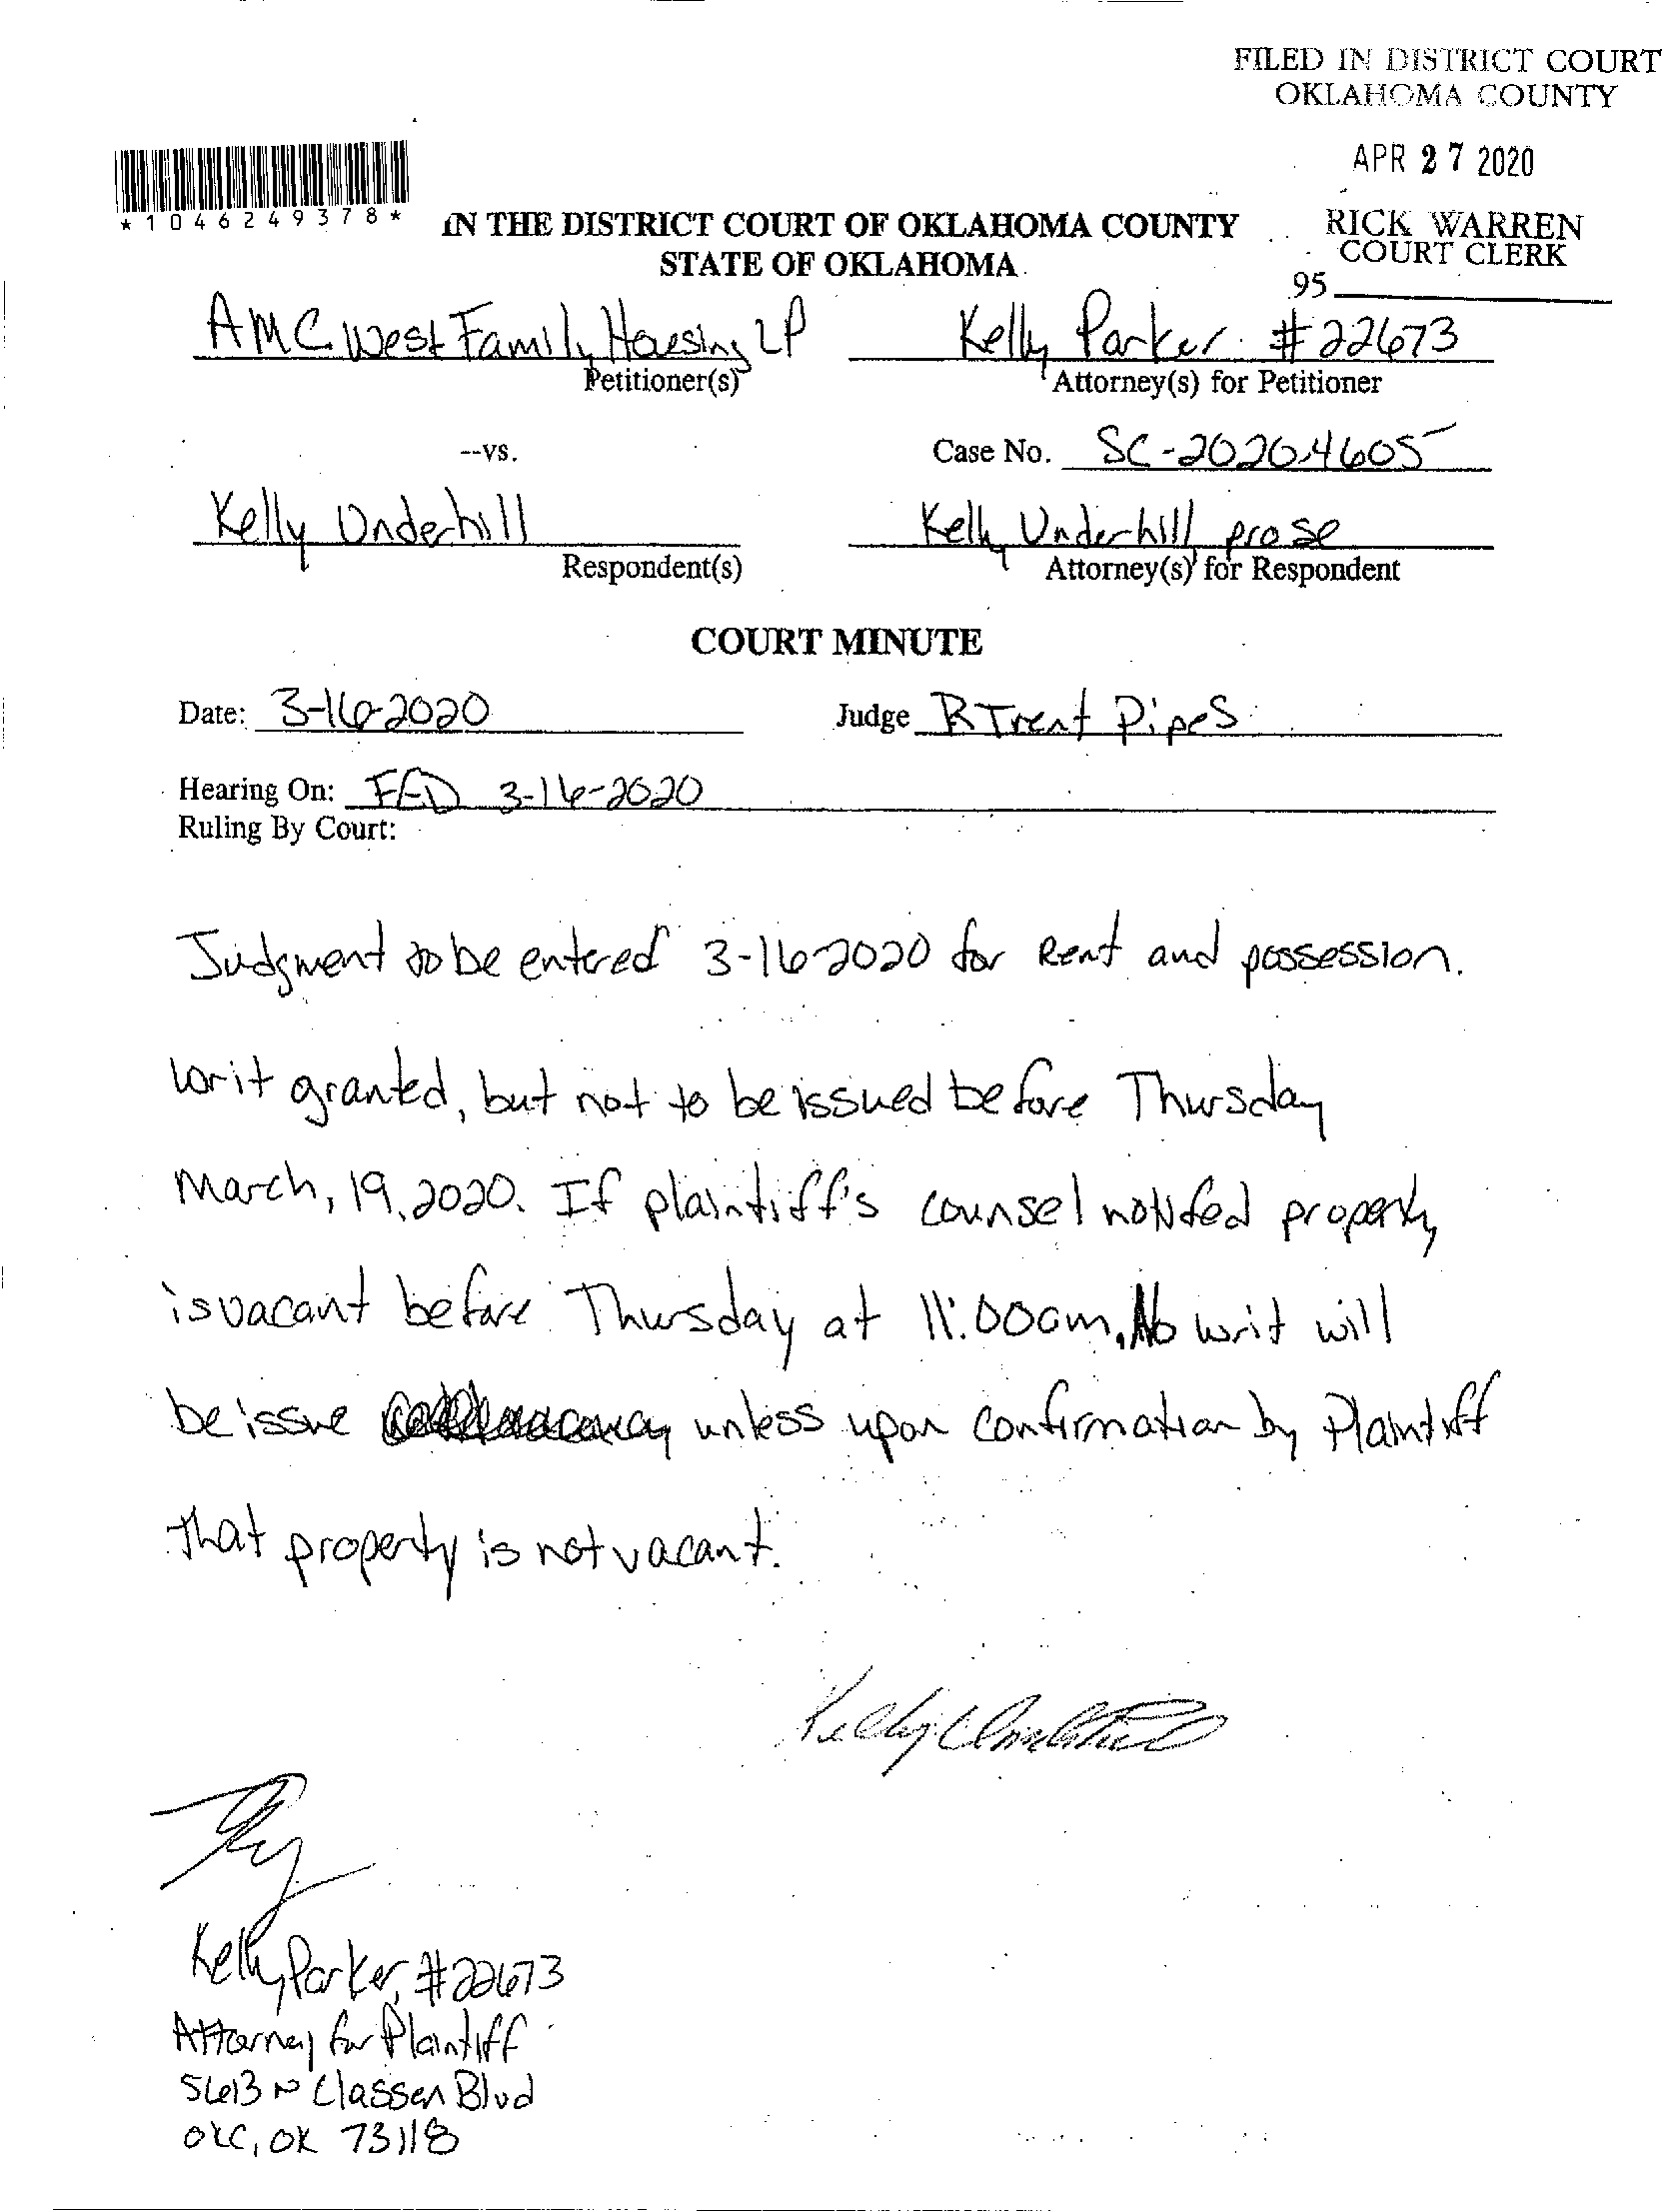 FILED IN DISTRICT COURT
OKLAHOMA COUNTY
APR 27 2020
RICK WARREN
COURT CLERK
95
*1046249378*
IN THE DISTRICT COURT OF OKLAHOMA COUNTY
STATE OF OKLAHOMA
AMC West Family Housing LP Kelly Parker #22673
Petitioner(s) Attorney(s) for Petitioner
--vs. Case No. SC-2020-4605
Kelly Underhill Kelly Underhill prose
Respondent(s) Attorney(s) for Respondent
COURT MINUTE
Date: 3-16-2020 Judge R Trent Pipes
Hearing On: FED 3-16-2020
Ruling By Court:
Judgment to be entered 3-16-2020 for Rent and possession.
writ granted, but not to be issued before Thursday
March, 19, 2020. If plaintiff's counsel notifed property
is vacant before Thursday at 11:00am, No writ will
be issue unless upon confirmation by Plaintiff
that property is not vacant.
Kelly Underhill
Kelly Parker, #22673
Attorney for Plaintiff
5613 N Classen Blvd
OKC, OK 73118